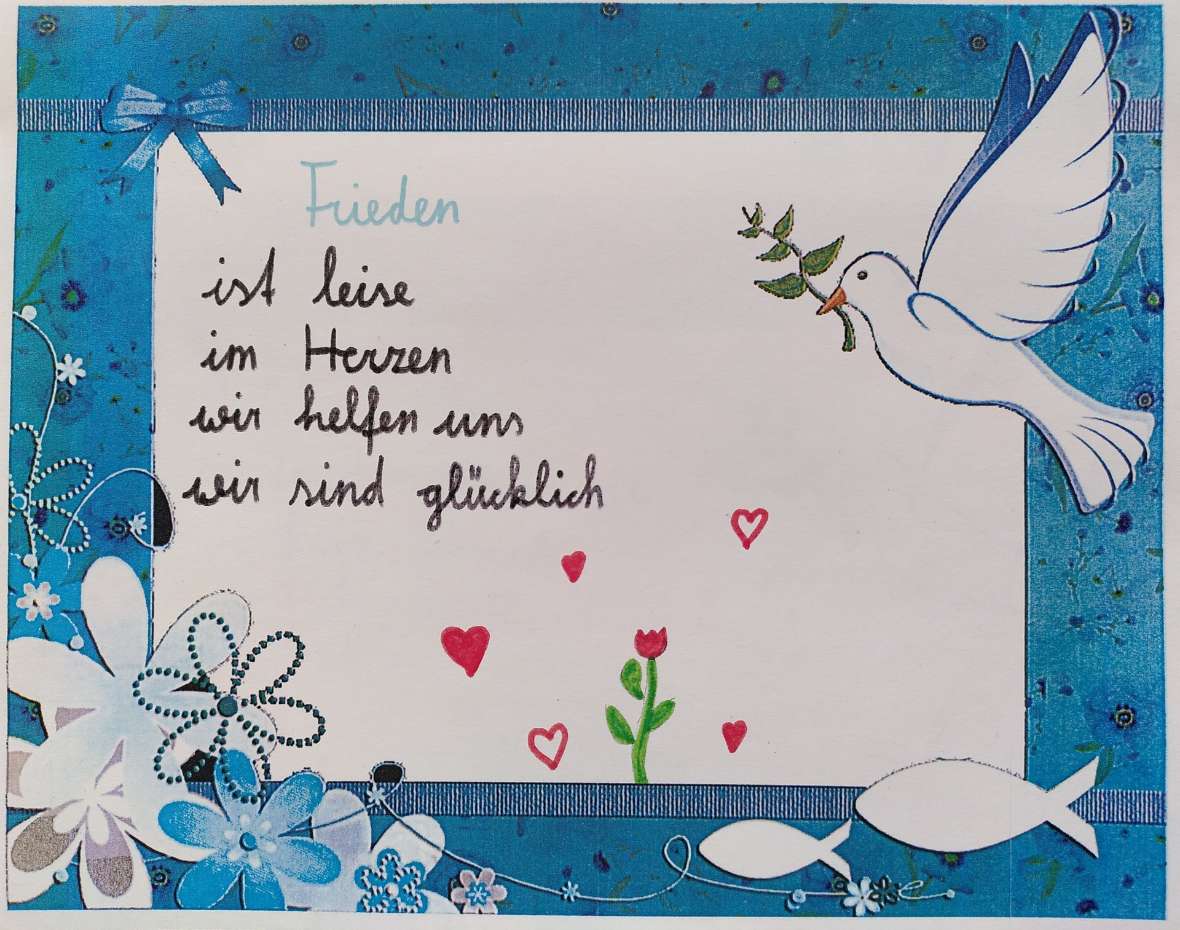 Frieden
ist leise
im Herzen
wir helfen uns
wir sind glücklich